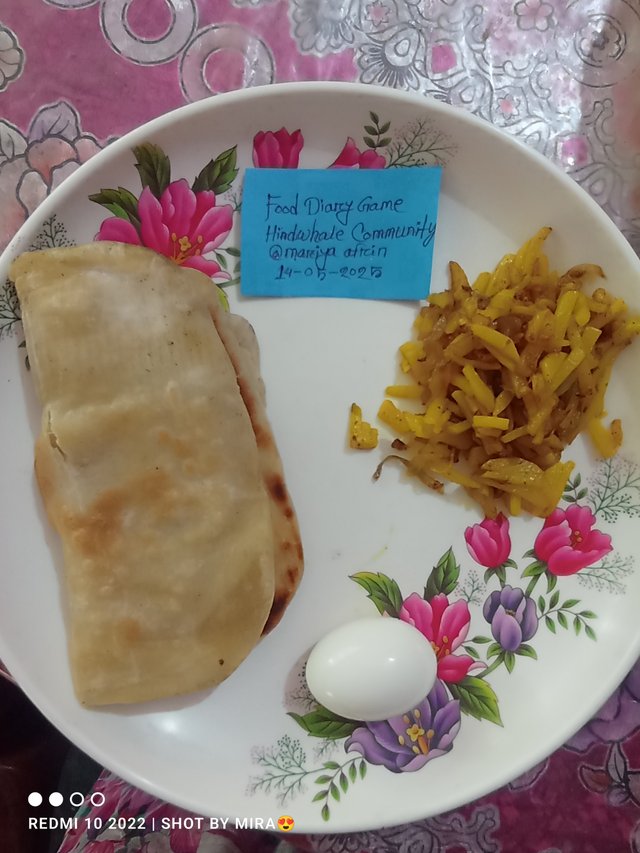 Food Diary Game
Hindwhale Community
@mariya afrin
14-05-2025
REDMI 10 2022 | SHOT BY MIRA😍